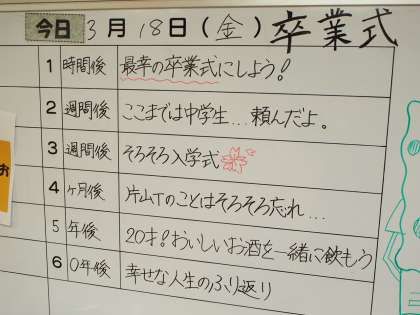 今日 3月18日(金) 卒業式
1 時間後 最幸の卒業式にしよう!
2 週間後 ここまでは中学生…頼んだよ。
3 週間後 そろそろ入学式
4 ヶ月後 片山Tのことはそろそろ忘れ…
5 年後 20才!おいしいお酒を一緒に飲もう
60年後 幸せな人生のふり返り
お